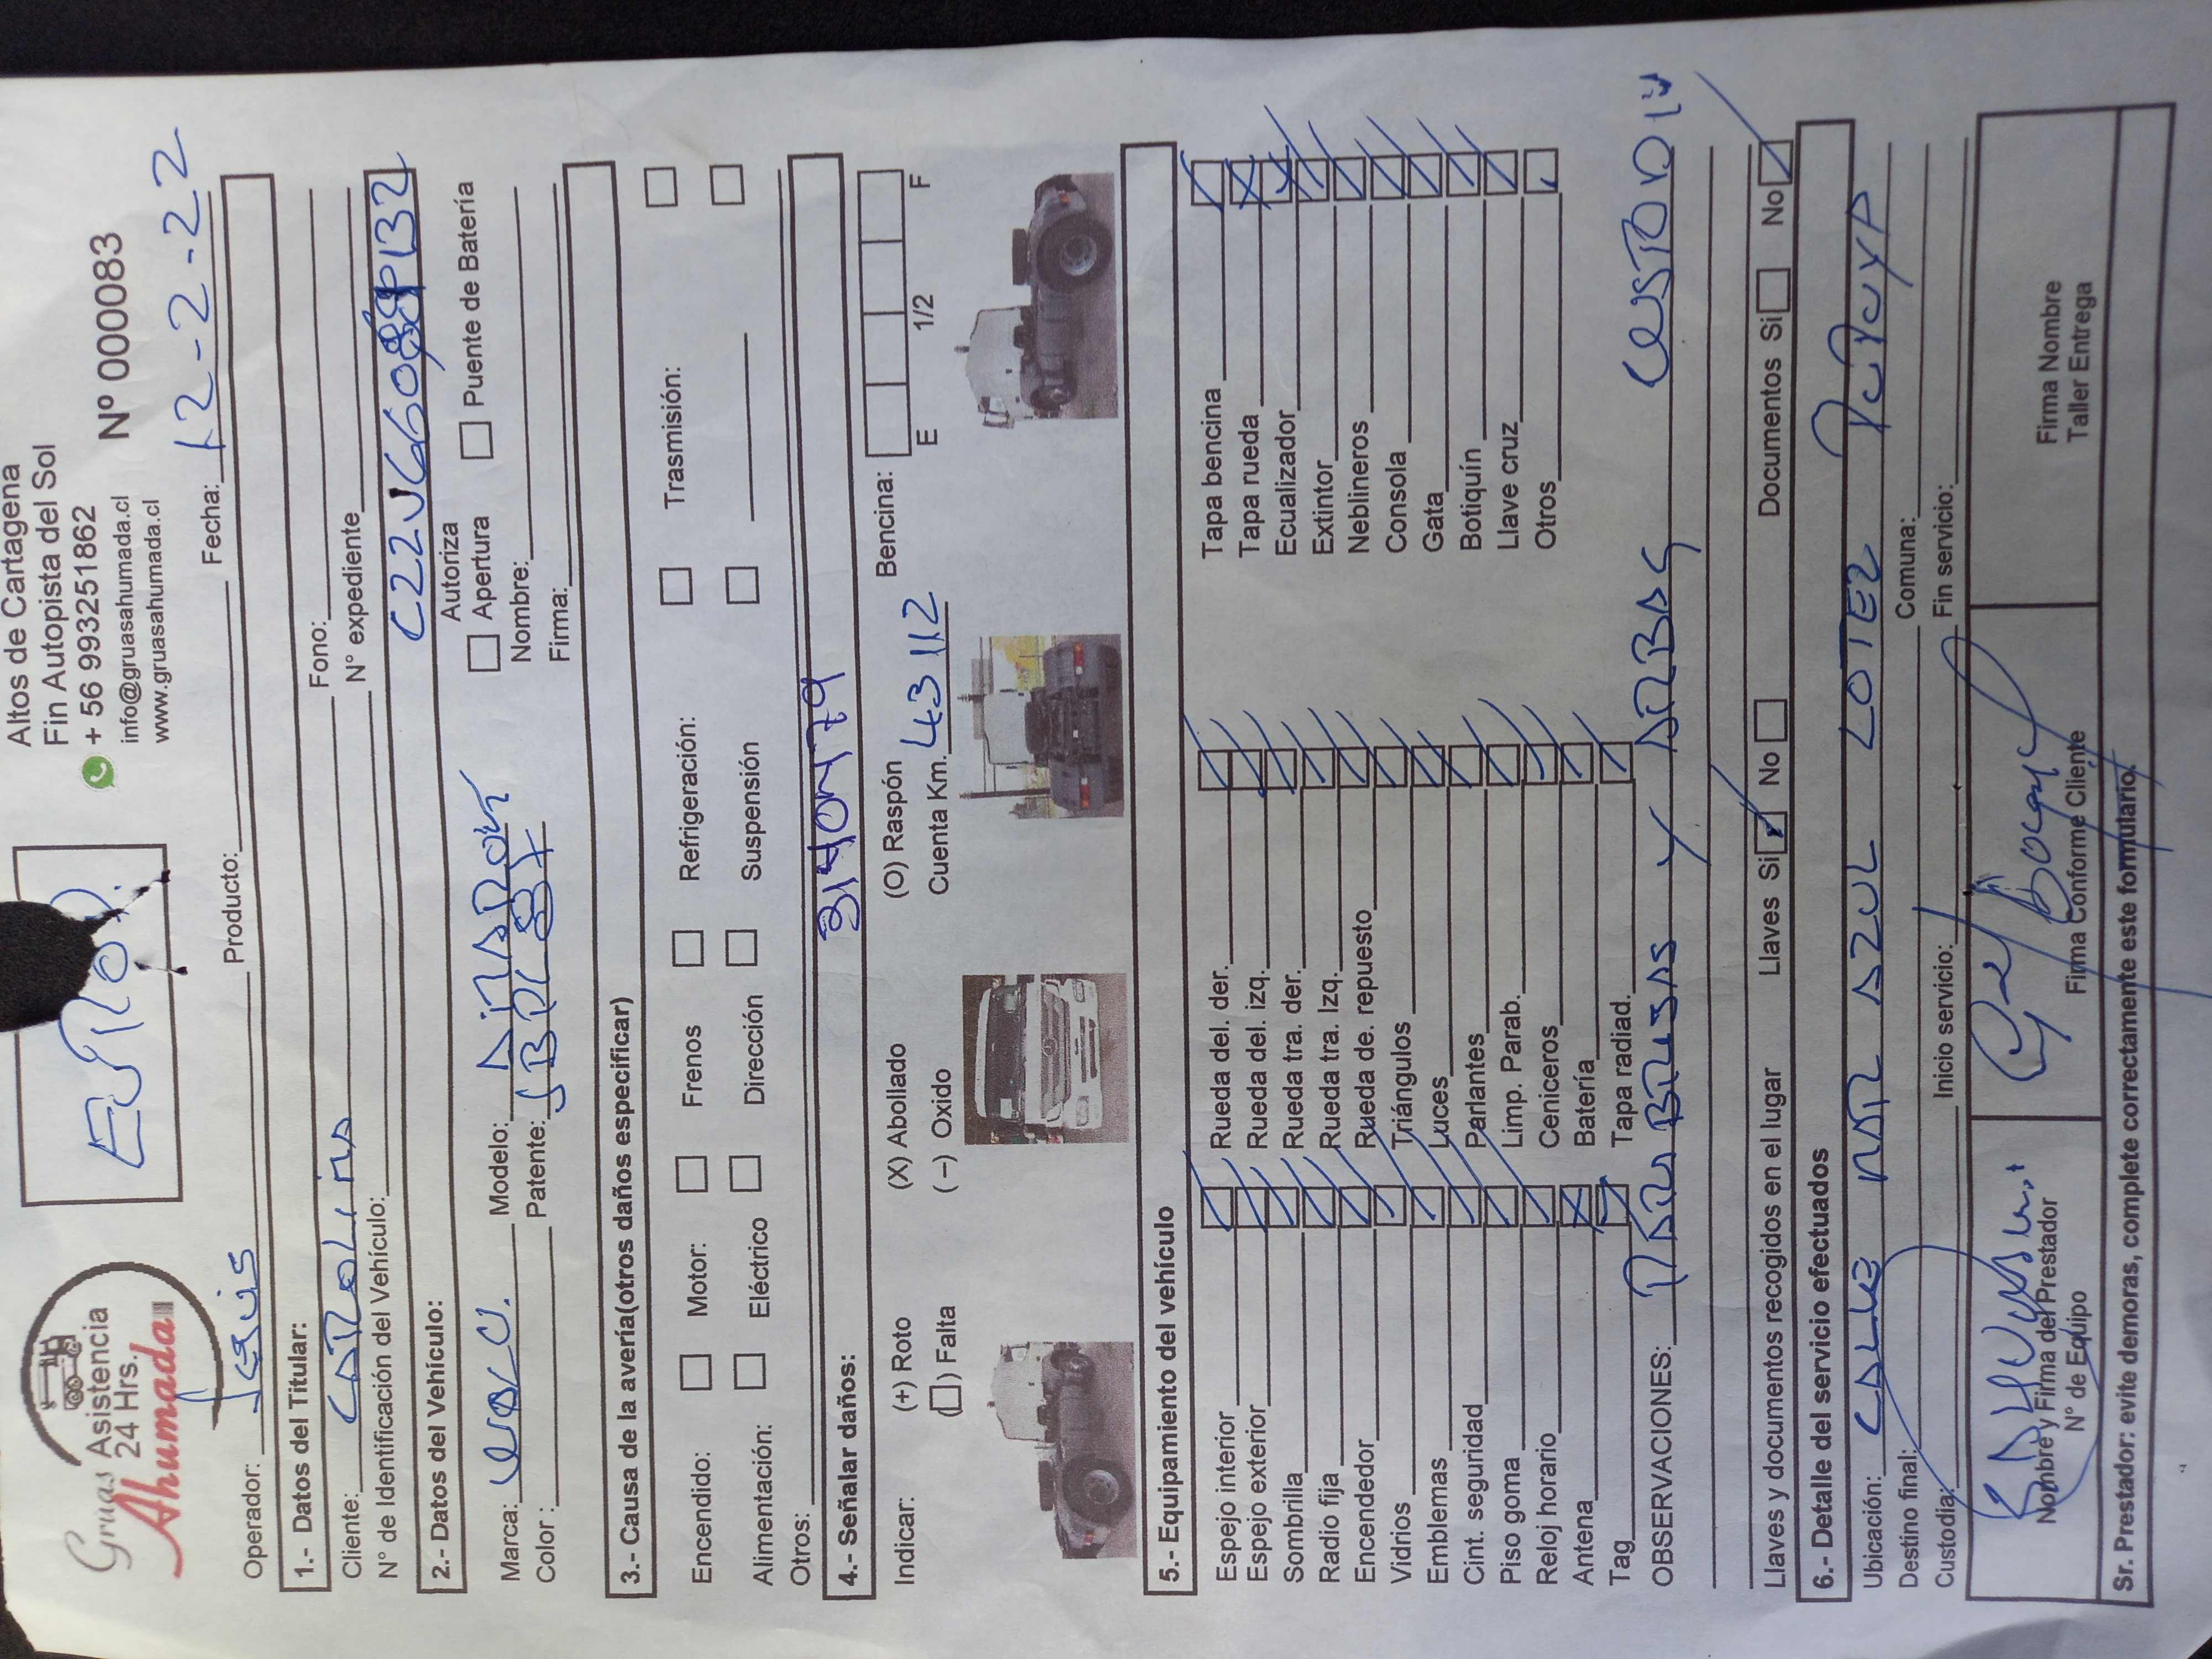 Gruas Asistencia
24 Hrs.
Ahumada
Altos de Cartagena
Fin Autopista del Sol
+ 56 993251862
info@gruasahumada.cl
www.gruasahumada.cl
Nº 0000083
Operador: Jesus Producto: Fecha: 12-2-22
1.- Datos del Titular:
Cliente: CAROLINA Fono:
N° de Identificación del Vehículo: N° expediente
2.- Datos del Vehículo:
Marca: Modelo:
Color: Patente:
Autoriza
Apertura Puente de Batería
Nombre:
Firma:
3.- Causa de la avería(otros daños especificar)
Encendido: Motor: Frenos Refrigeración: Trasmisión:
Alimentación: Eléctrico Dirección Suspensión
Otros:
4.- Señalar daños:
Indicar: (+) Roto (X) Abollado (O) Raspón Bencina:
( ) Falta (−) Oxido Cuenta Km. 43112 E 1/2 F
5.- Equipamiento del vehículo
Espejo interior Rueda del. der. Tapa bencina
Espejo exterior Rueda del. izq. Tapa rueda
Sombrilla Rueda tra. der. Ecualizador
Radio fija Rueda tra. Izq. Extintor
Encendedor Rueda de. repuesto Neblineros
Vidrios Triángulos Consola
Emblemas Luces Gata
Cint. seguridad Parlantes Botiquín
Piso goma Limp. Parab. Llave cruz
Reloj horario Ceniceros Otros
Antena Batería
Tag Tapa radiad.
OBSERVACIONES: Y
Llaves y documentos recogidos en el lugar Llaves Si No Documentos Si No
6.- Detalle del servicio efectuados
Ubicación: CALLE AZUL LOTE2
Destino final: Comuna:
Custodia: Inicio servicio: Fin servicio:
Nombre y Firma del Prestador
N° de Equipo
Firma Conforme Cliente
Firma Nombre
Taller Entrega
Sr. Prestador: evite demoras, complete correctamente este formulario.